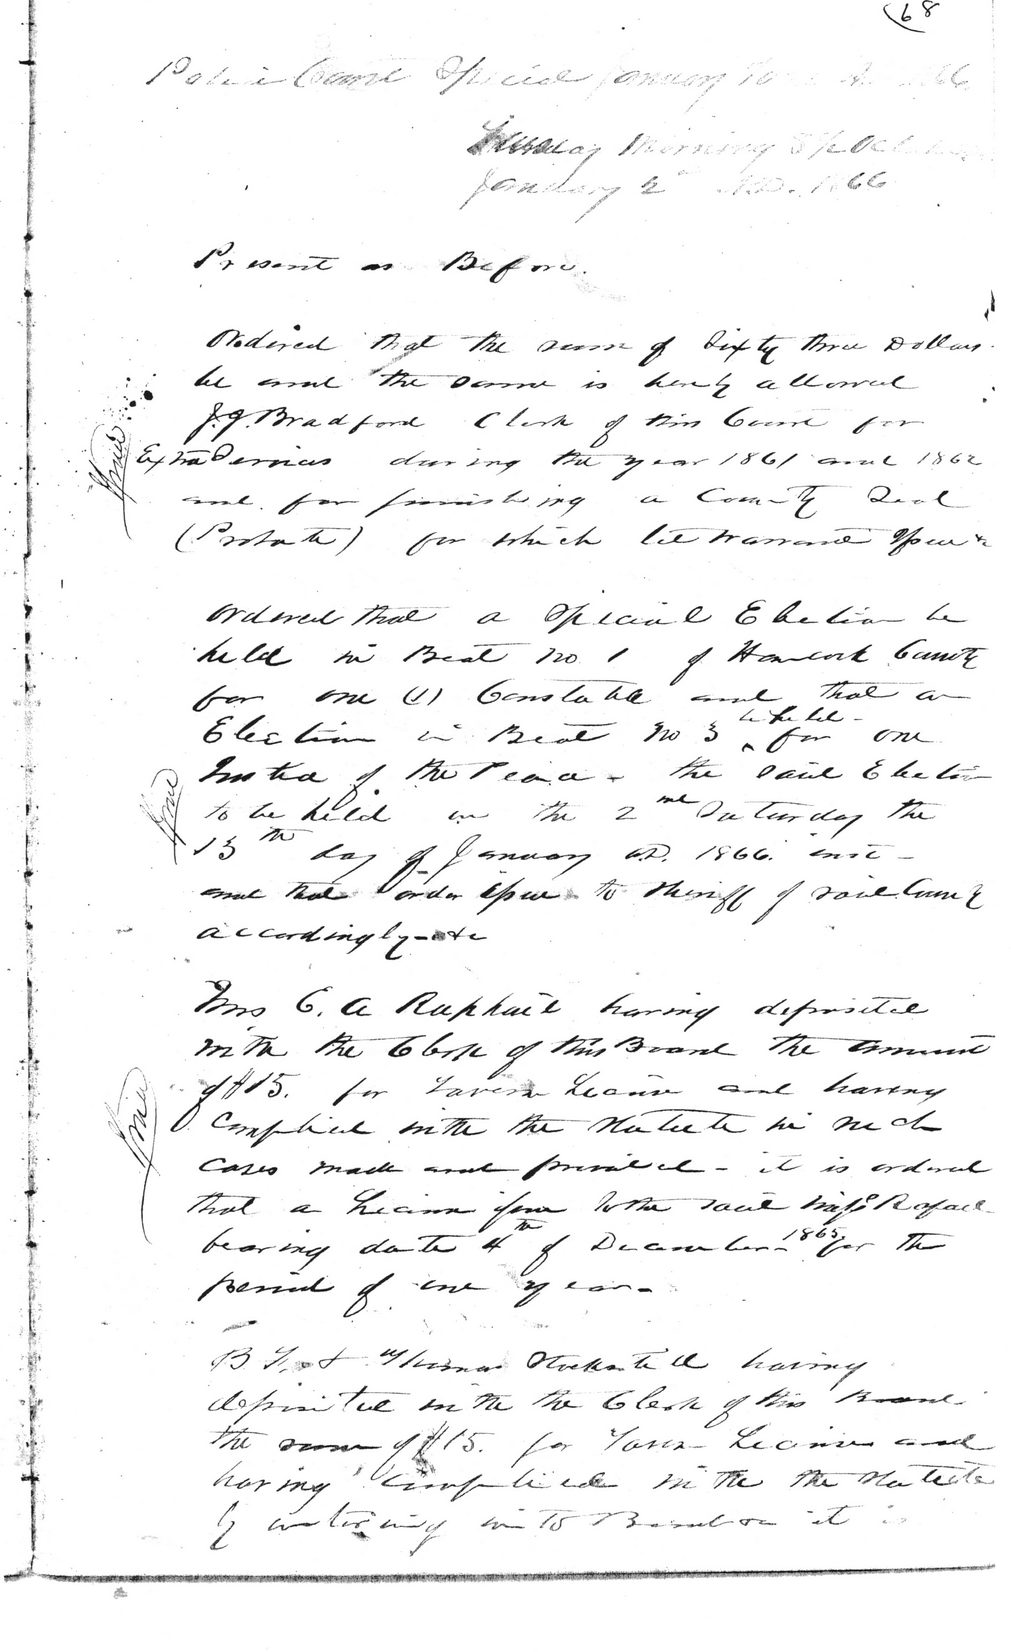 68
Police Court Special January Term A.D. 1866
Tuesday Morning 9 O'Clock
January 2nd A.D. 1866
Present as Before.
Ordired that the sum of Sixty three Dollars
be and the same is hereby allowed
J.J. Bradford Clerk of this Court for
Extra Services during the year 1861 and 1862
and for furnishing a County Seal
(Probate) for which let warrant Issue &c
Ordered that a Special Election be
held in Beat No 1 of Hancock County
for one (1) Constable and that an
Election in Beat No 3 be held for one
Justice of the Peace - the said Election
to be held on the 2nd Saturday the
13th day of January A.D. 1866. inst -
and that order Issue to Sheriff of said County
accordingly - &c
Mrs E. A Raphael having deposited
with the Clerk of this Board the amount
of $15. for Tavern License and having
Complied with the Statute in such
cases made and provided - it is ordered
that a License issue to the said Mrs Rafael
bearing date 4th of December 1865 for the
period of one year -
B T. & Thomas having
deposited with the Clerk of this Board
the sum of $15. for Tavern License and
having complied with the Statute
by entering into Bond &c it is